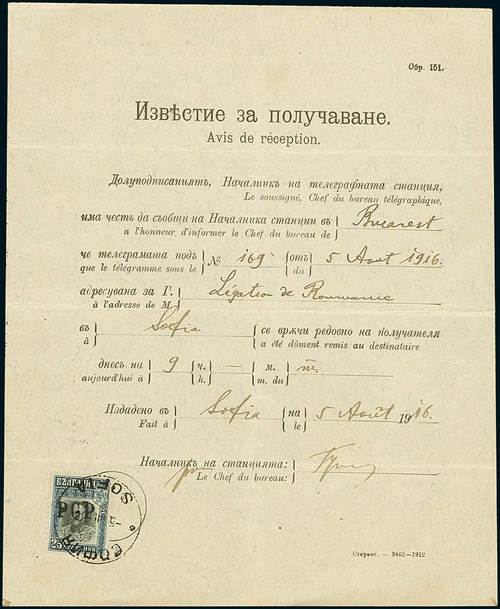 Обр. 151.
Извѣстие за получаване.
Avis de réception.
Долуподписаниятъ, Началникъ на телеграфната станция,
Le soussigné, Chef du bureau télégraphique,
има честь да съобщи на Началника станции въ
a l'honneur d'informer le Chef du bureau de
Bucarest
че телеграмата подъ
que le télégramme sous le
№ 169
отъ
du
5 Aout 1916.
адресувана за Г.
à l'adresse de M.
Légation de Roumanie
въ
à
Sofia
се врѫчи редовно на получателя
a été dûment remis au destinataire
днесъ на
aujourd'hui à
9
ч.
h.
—
м.
m. du
Издадено въ
Fait à
Sofia
на
le
5 Août 1916.
Началникъ на станцията:
Le Chef du bureau:
БЪЛГАРИЯ
РСР
25
СОФИЯ
SOF
Стержет. — 3462—1912